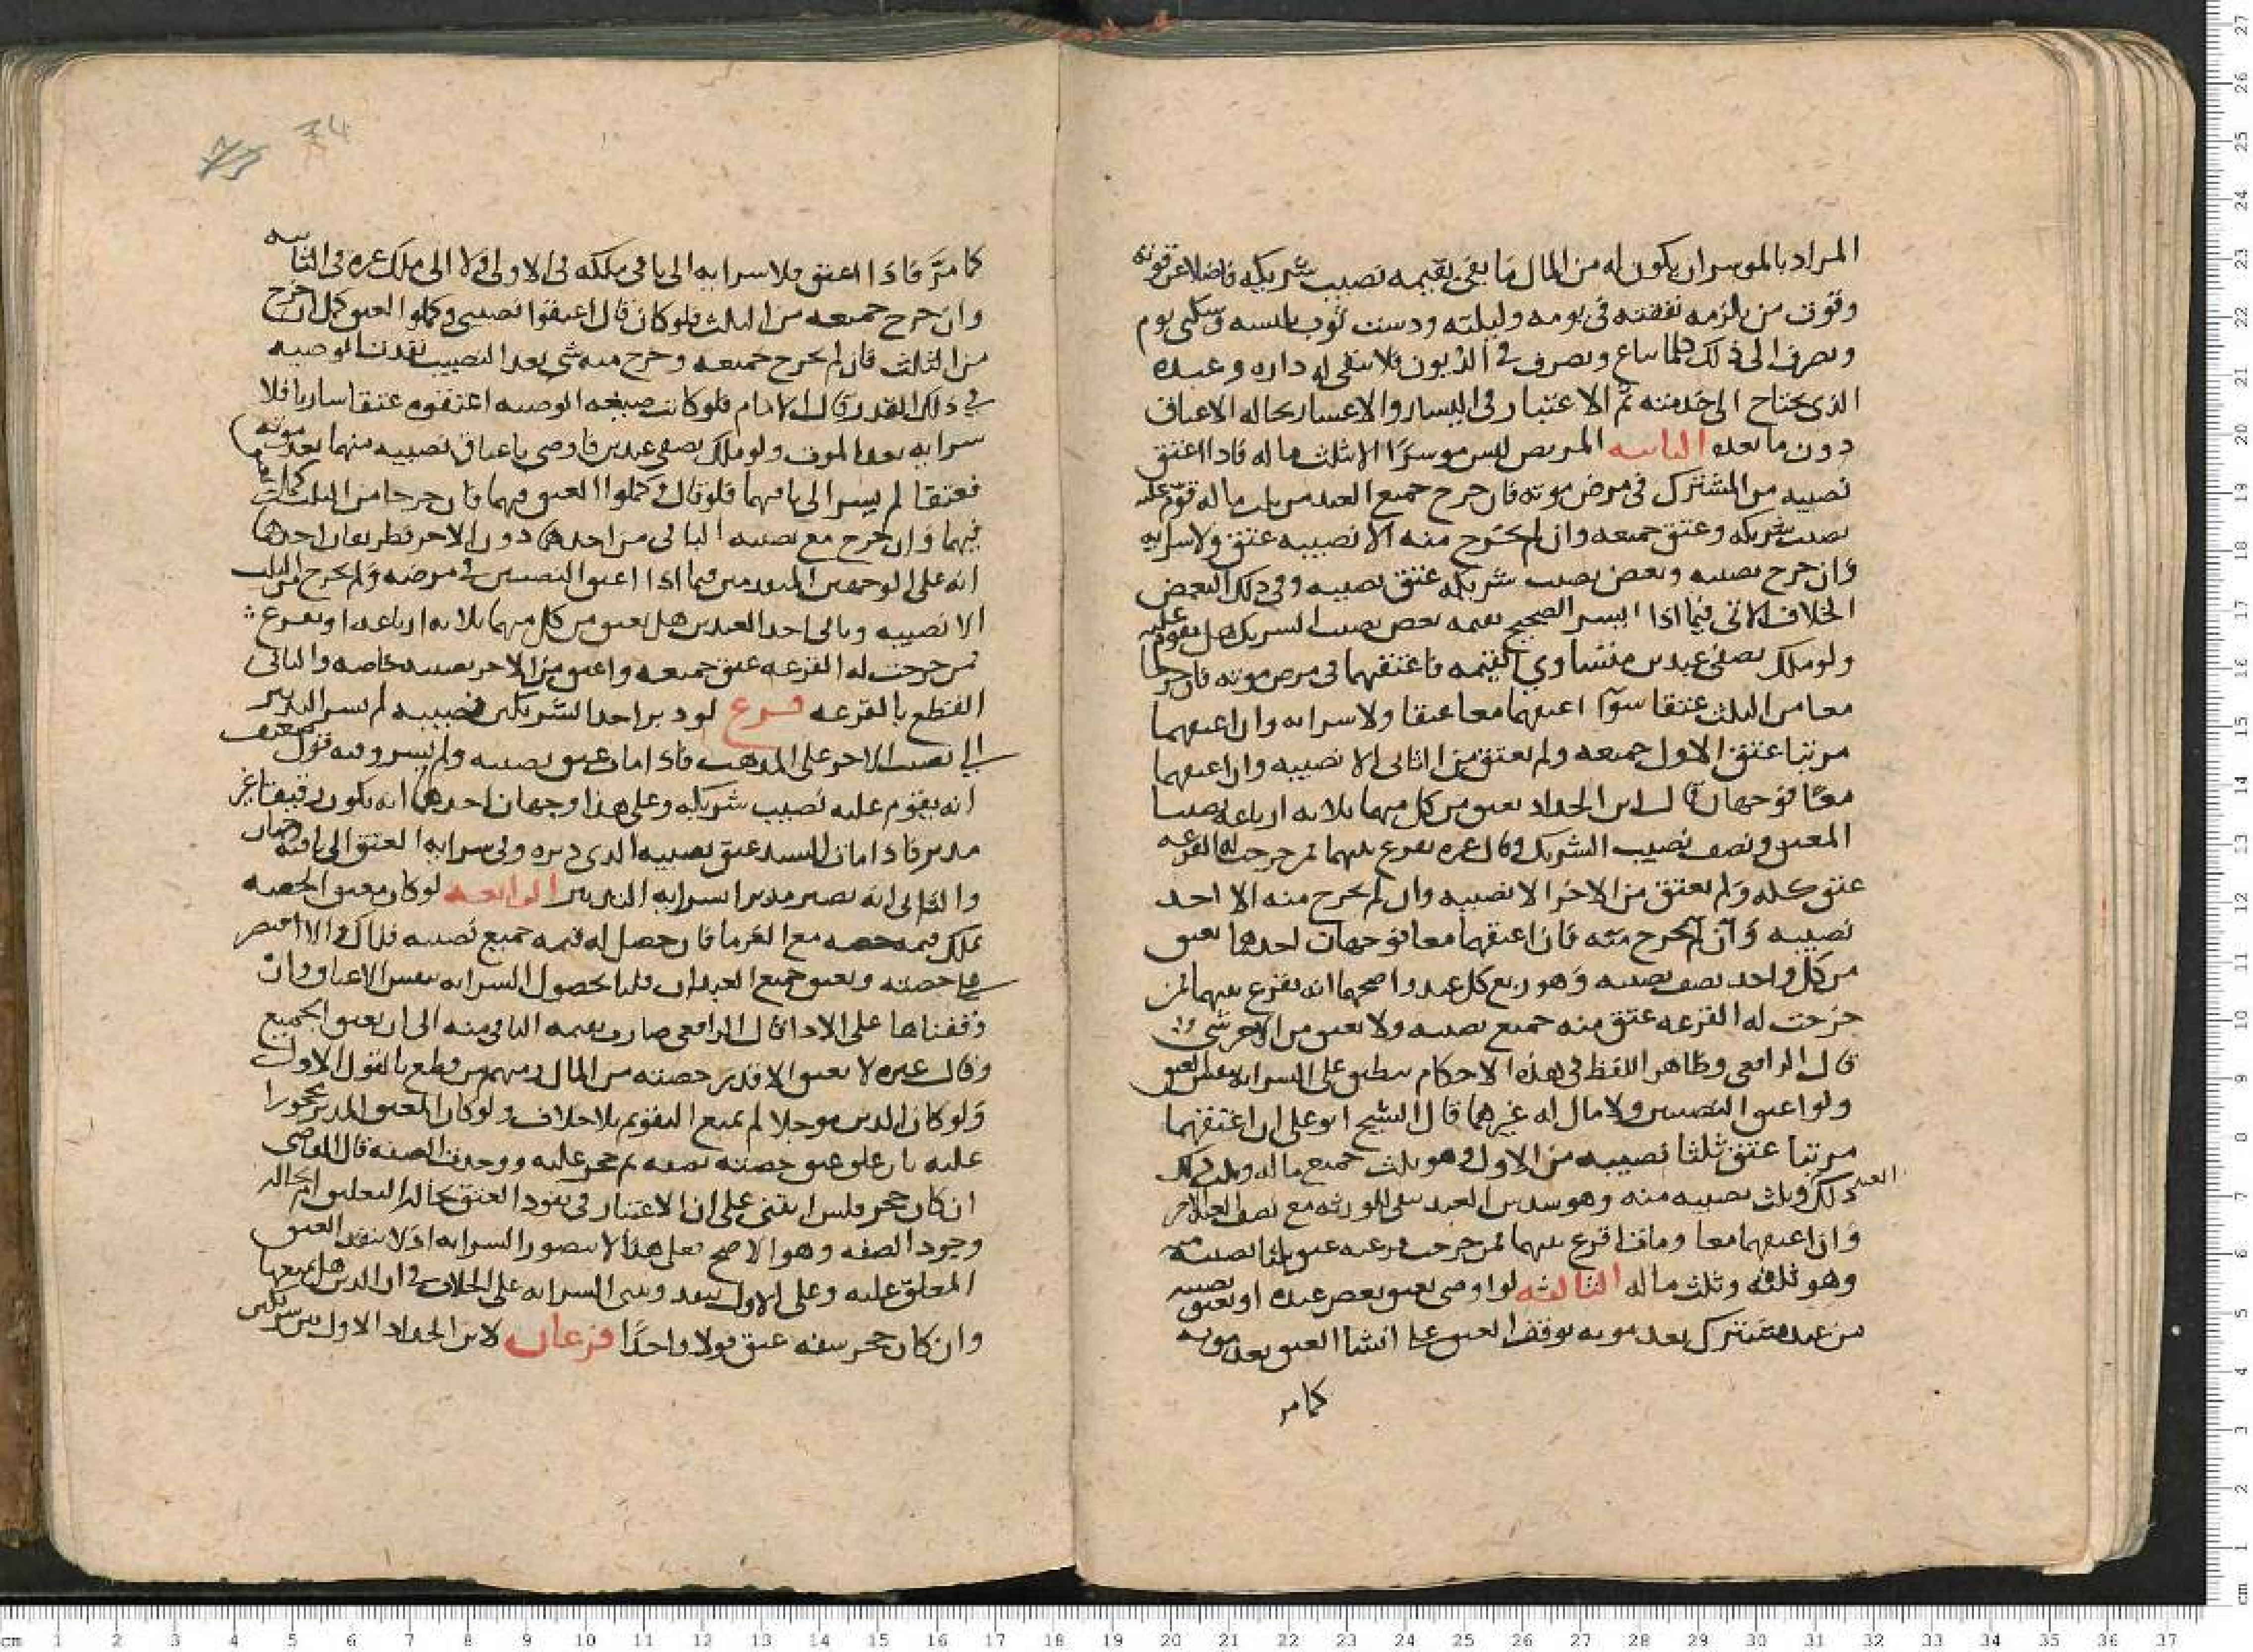 المراد بالموسر ان يكون له من المال ما يفي بقيمه نصيب شريكه فاضلا عن قوته
وقوت من يلزمه نفقته في يومه وليلته ودست ثوب يلبسه وسكنى يوم
ويصرف الى ذلك كلما يباع ويصرف في الديون فلا يبقى له داره وعبده
الذي يحتاج الى خدمته ثم الاعتبار في اليسار والاعسار بحاله الاعتاق
دون ما بعده الثانيه المريض ليس موسرا الا بثلث ماله فاذا اعتق
نصيبه من المشترك في مرض موته فان خرج جميع العبد من ثلث ماله قوم عليه
نصيب شريكه وعتق جميعه وان لم يخرج منه الا نصيبه عتق ولا سرايه
وان خرج نصيبه وبعض نصيب شريكه عتق نصيبه وفي ذلك البعض
الخلاف الاتي فيما اذا ايسر الصحيح بقيمه بعض نصيب الشريك هل يقوم عليه
ولو ملك نصفي عبدين متساوي القيمه فاعتقهما في مرض موته فان خرجا
معا من الثلث عتقا سوآ اعتقهما معا عتقا ولا سرايه وان اعتقهما
مرتبا عتق الاول جميعه ولم يعتق من الثاني الا نصيبه وان اعتقهما
معا فوجهان قال ابن الحداد يعتق من كل منهما ثلاثه ارباعه نصيب
المعتق ونصف نصيب الشريك وقال غيره يقرع بينهما فمن خرجت له القرعه
عتق كله ولم يعتق من الاخر الا نصيبه وان لم يخرج منه الا احد
نصيبيه وان لم يخرج منه فان اعتقهما معا فوجهان احدهما يعتق
من كل واحد نصف نصيبه وهو ربع كل عبد واصحهما انه يقرع بينهما فمن
خرجت له القرعه عتق منه جميع نصيبه ولا يعتق من الاخر شي
قال الرافعي وظاهر اللفظ في هذه الاحكام ينطبق على السرايه بنفس العتق
ولو اعتق النصيبين ولا مال له غيرهما قال الشيخ ابو علي ان اعتقهما
مرتبا عتق ثلثا نصيبه من الاول وهو ثلث جميع ماله
ذلك وثلث نصيبه منه وهو سدس العبد يبقى للورثه مع نصف العبد الاخر
وان اعتقهما معا ومات اقرع بينهما فمن خرجت قرعته عتق ثلثا نصيبه منه
وهو ثلثه وثلث ماله الثالثه لو اوصى بعتق بعض عبده او بعتق نصيبه
من عبد مشترك بعد موته توقف العتق على انشا العتق بعد موته
كما مر
كما مر فاذا اعتق فلا سرايه الى باقي ملكه في الاولى ولا الى ملك غيره في الثانيه
وان خرج جميعه من الثلث فلو كان قال اعتقوا نصيبي وكملوا العتق كمل ان خرج
من الثلث فان لم يخرج جميعه وخرج منه شي بعد النصيب نفذت الوصيه
في ذلك القدر قال الامام فلو كانت صيغه الوصيه اعتقوه عتقا ساريا فلا
سرايه بعد الموت ولو ملك نصفي عبدين فاوصى باعتاق نصيبيه منهما بعد موته
فعتقا لم يسر الى باقيهما فلو قال وكملوا العتق فيهما فان خرجا من الثلث كمل
فيهما وان خرج مع نصيبيه الباقي من احدهما دون الاخر فطريقان احدهما
انه على الوجهين المتقدمين فيما اذا اعتق النصيبين في مرضه ولم يخرج من الثلث
الا نصيبيه وباقي احد العبدين هل يعتق من كل منهما ثلاثه ارباعه او يقرع
فمن خرجت له القرعه عتق جميعه واعتق من الاخر نصيبه خاصه والثاني
القطع بالقرعه فرع لو دبر احد الشريكين نصيبه لم يسر التدبير
الى نصيب الاخر على المذهب فاذا مات عتق نصيبه ولم يسر وفيه قول ضعيف
انه يقوم عليه نصيب شريكه وعلى هذا وجهان احدهما انه يكون رقيقا غير
مدبر فاذا مات السيد عتق نصيبه الذي دبره وفي سرايه العتق الى باقيه وجهان
والثاني انه يصير مدبرا بسرايه التدبير الرابعه لو كان معتق الحصه
يملك قيمه حصه مع الغرما فان حصل له قيمه جميع نصيبه فذاك والا اقتصر
على حصته ويعتق جميع العبد ان قلنا بحصول السرايه بنفس الاعتاق وان
وقفناها على الادا قال الرافعي صارت قيمه الباقي منه الى ان يعتق الجميع
وقال غيره لا يعتق الا قدر حصته من المال ومنهم من قطع بالقول الاول
ولو كان الدين موجلا لم يمنع التقويم بلا خلاف ولو كان المعتق المدين محجورا
عليه بان علق عتق حصته بصفه ثم حجر عليه ووجدت الصفه قال القاضي
ان كان حجر فلس ابتنى على ان الاعتبار في نفود العتق بحاله التعليق ام بحاله
وجود الصفه وهو الاصح فعلى هذا لا يتصور السرايه اذ لا ينفد العتق
المعلق عليه وعلى الاول ينفد وتبنى السرايه على الخلاف في ان الدين هل يمنعها
وان كان حجر سفه عتق قولا واحدا فرعان لابن الحداد الاول بين شريكين